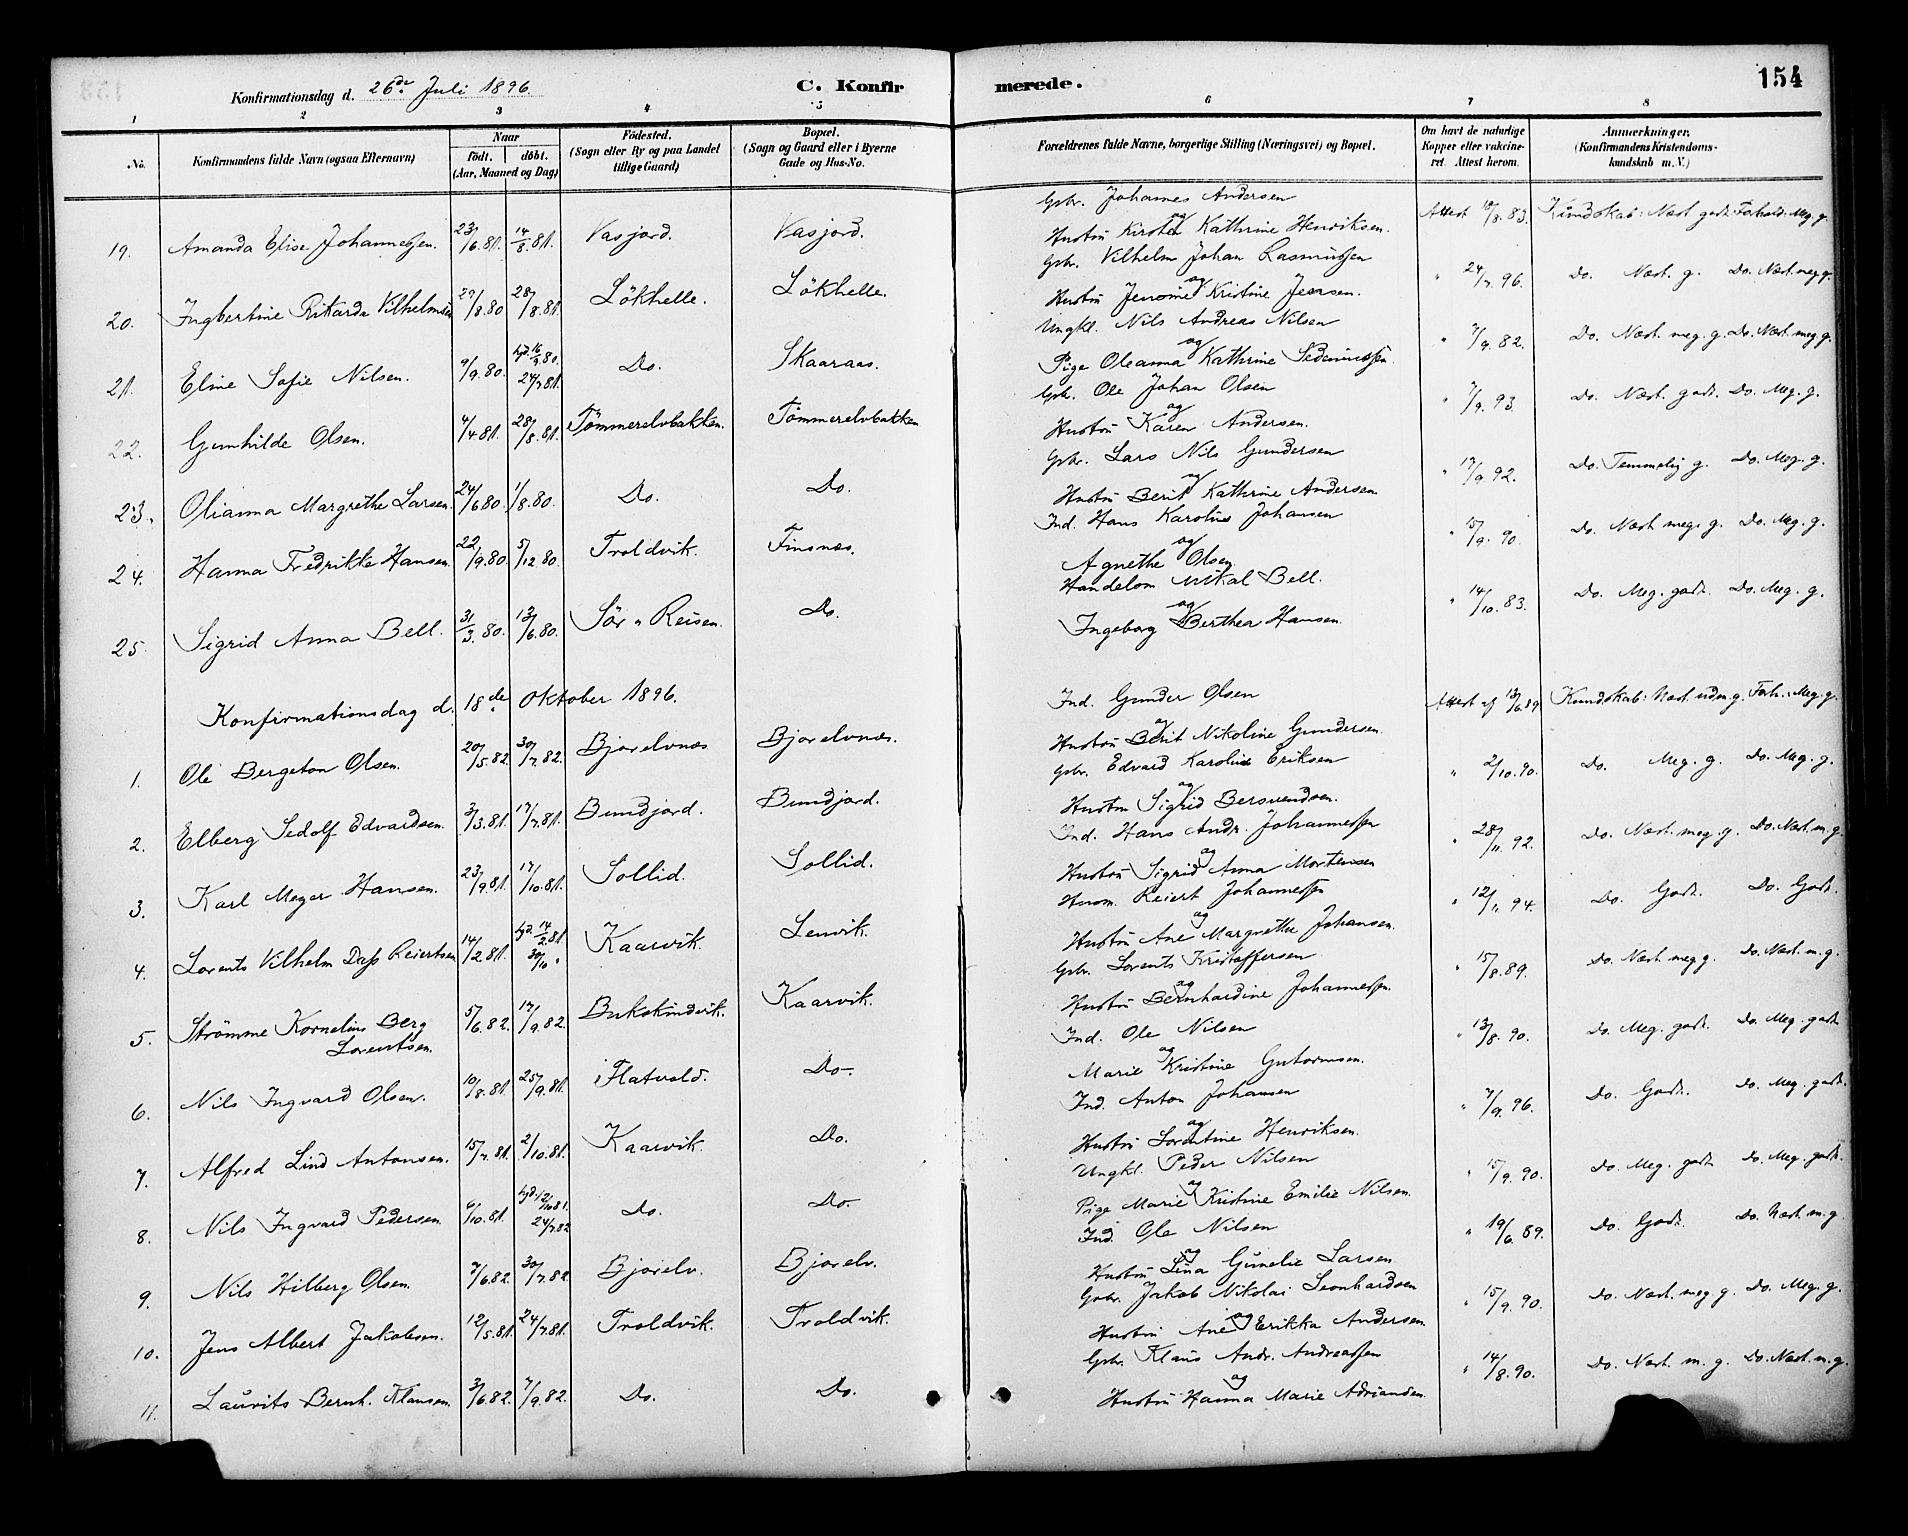 Konfirmationsdag d. 26de Juli 1896.
C. Konfirmerede.
154
1 2 3 4 5 6 7 8
No.
Konfirmandens fulde Navn (ogsaa Efternavn)
Naar
födt. döbt.
(Aar, Maaned og Dag)
Födested.
(Sogn eller By og paa Landet
tillige Gaard)
Bopæl.
(Sogn og Gaard eller i Byerne
Gade og Hus-No.
Forældrenes fulde Navne, borgerlige Stilling (Næringsvei) og Bopæl.
Om havt de naturlige
Kopper eller vakcineret. Attest herom.
Anmærkninger.
(Konfirmandens Kristendomskundskab m. V.)
19. Amanda Elise Johannessen. 23/6.81. 14/8.81. Vasjord. Vasjord. Gbr. Johannes Andersen og Hustru Kirsten Kathrine Henriksen. Attest 18/8.83. Kundskab: Næst godt. Forhold: Meg. g.
20. Ingbertine Rikarda Vilhelmsen 29/8.80 28/8.81. Lökhelle. Lökhelle. Gbr. Vilhelm Johan Rasmussen og Hustru Jenomine Kristine Jensen. " 24/7.96. Do. Næst. g. Do. Næst meg g.
21. Eline Sofie Nilsen. 9/9.80. hjd. 16/9.80. 24/7.81. Do. Skaaraas. Ungkl. Nils Andreas Nilsen og Pige Oleanna Kathrine Sedeniussen. " 7/9.82. Do. Næst. meg. g. Do. Næst. meg g.
22. Gunhilde Olsen. 4/4.81. 28/8.81. Tömmerelvbakken. Tömmerelvbakken Gbr. Ole Johan Olsen og Hustru Karen Andersen. " 7/9.93. Do. Næst. godt. Do. Meg. g.
23. Olianna Margrethe Larsen. 24/6.80. 1/8.80. Do. Do. Gbr. Lars Nils Gundersen og Hustru Berit Kathrine Andersen. " 17/9.92. Do. Temmelig g. Do. Meg. g.
24. Hanna Fredrikke Hansen. 22/9.80. 5/12.80. Troldvik. Finsnæs. Ind. Hans Karolius Johansen og Agnethe Olsen. " 15/9.90. Do. Næst meg. g. Do. Meg. g.
25. Sigrid Anna Bell. 31/3.80. 13/6.80. Sör " Reisen. Do. Handelsm. Mikal Bell. og Ingeborg Berthea Hansen. " 14/10.83. Do. Meg. godt. Do. Meg. g.
Konfirmationsdag d. 18de Oktober 1896.
1. Ole Bergeton Olsen. 20/5.82. 30/7.82. Bjorelvnæs Bjorelvnæs. Ind. Gunder Olsen og Hustru Berit Nikoline Gundersen. Attest af 13/6.89. Kundskab: Næst. uden g. Forh.: Meg. g.
2. Elberg Sedolf Edvardsen. 3/3.81. 17/7.81. Bundjord. Bundjord. Gbr. Edvard Karolius Eriksen og Hustru Sigrid Bersvendsen. " 2/10.90. Do. Meg. g. Do. Meg. g.
3. Karl Meyer Hansen. 23/9.81. 17/10.81. Sollid. Sollid. Ind. Hans Andr. Johannessen og Hustru Sigrid Anna Mortensen " 28/11.92. Do. Næst. meg. g. Do. Næst. m. g.
4. Lorents Vilhelm Dass Reiertsen 14/2.81. hjd. 14/2.81. 30/10 " Kaarvik. Lenvik. Husm. Reiert Johannessen og Hustru Ane Margrethe Johansen. " 12/11.94. Do. Godt. Do. Godt.
5. Strömme Kornelius Berg Lorentsen. 5/6.82. 17/9.82. Bukskindvik. Kaarvik. Gbr. Lorents Kristoffersen og Hustru Bernhardine Johannessen. " 15/8.89. Do. Næst. meg g. Do. Næst. m. g.
6. Nils Ingvard Olsen. 10/8.81. 25/9.81. Flatvold. Do. Ind. Ole Nilsen og Marie Kristine Gutormsen. " 13/8.90. Do. Meg. godt. Do. Meg. godt
7. Alfred Lind Antonsen. 15/7.81. 2/10.81. Kaarvik. Do. Ind. Anton Johansen og Hustru Lorentine Henriksen. " 7/9.96. Do. Godt. Do. Meg. godt.
8. Nils Ingvard Pedersen. 6/10.81. hjd. 12/10.81. 24/7.82 Do. Do. Ungkl. Peder Nilsen og Pige Marie Kristine Emilie Nilsen. " 15/9.90. Do. Meg. godt. Do. Meg. godt.
9. Nils Hilberg Olsen. 7/6.82. 30/7.82. Bjorelv. Bjorelv. Ind. Ole Nilsen og Hustru Lina Gunelie Larsen " 19/6.89. Do. Godt. Do. Næst. m. g.
10. Jens Albert Jakobsen. 12/5.81. 24/7.81. Troldvik. Troldvik. Gbr. Jakob Nikolai Leonhardsen og Hustru Ane Erikka Andersen. " 15/9.90. Do. Næst. meg. g. Do. Meg. g.
11. Laurits Bernh. Klausen. 3/6.82. 7/9.82. Do. Do. Gbr. Klaus Andr. Andreassen og Hustru Hanna Marie Adriansen. " 14/8.90. Do. Næst. m. g. Do. Næst. m. g.